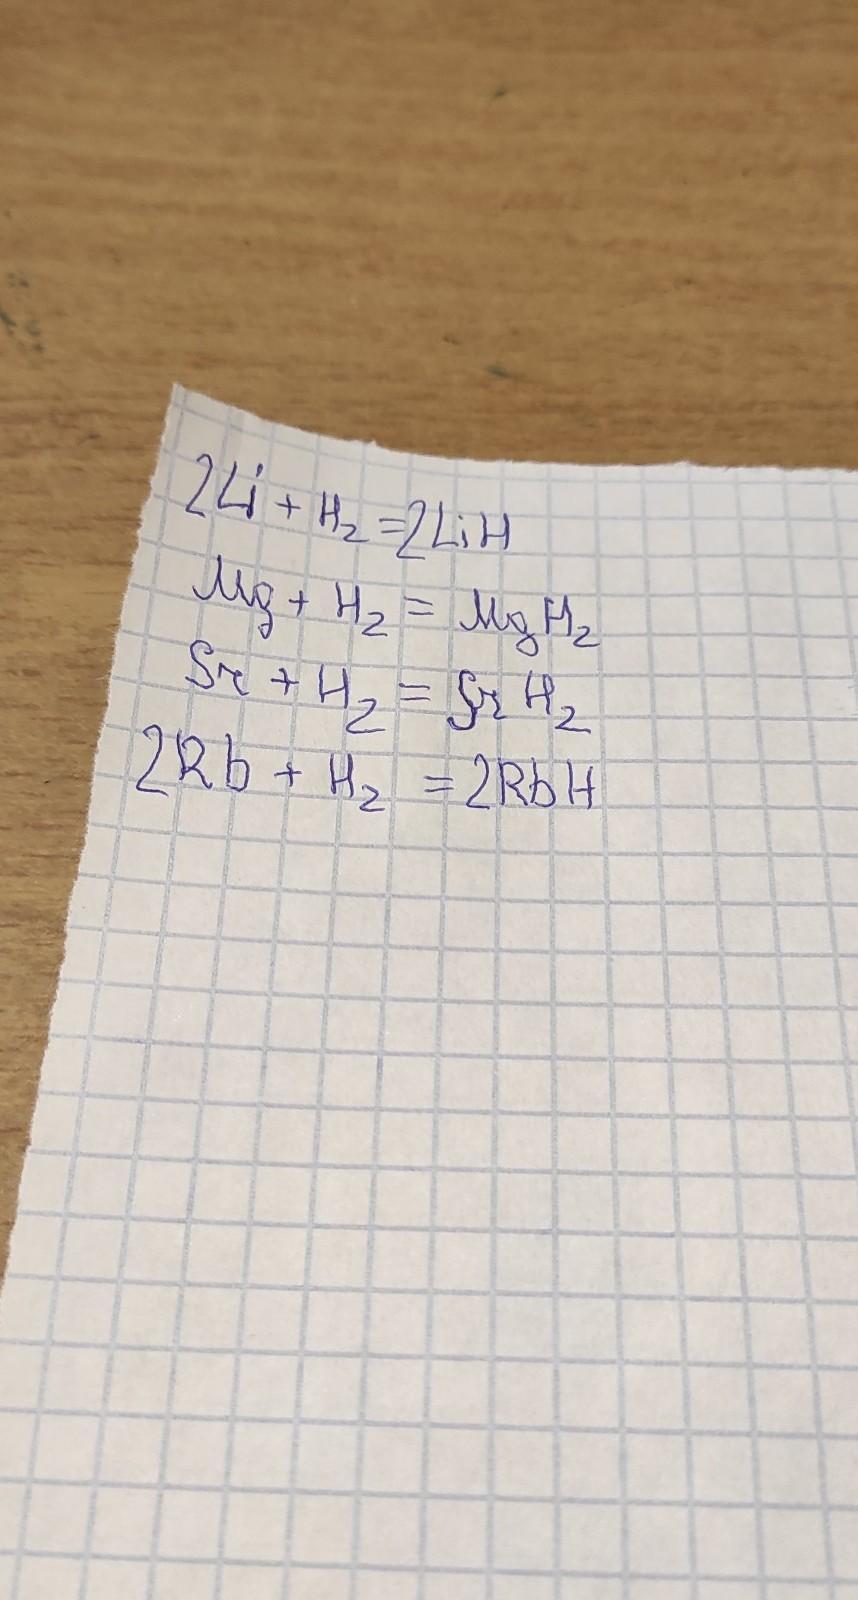 2Li + H₂ = 2LiH
Mg + H₂ = MgH₂
Sr + H₂ = SrH₂
2Rb + H₂ = 2RbH